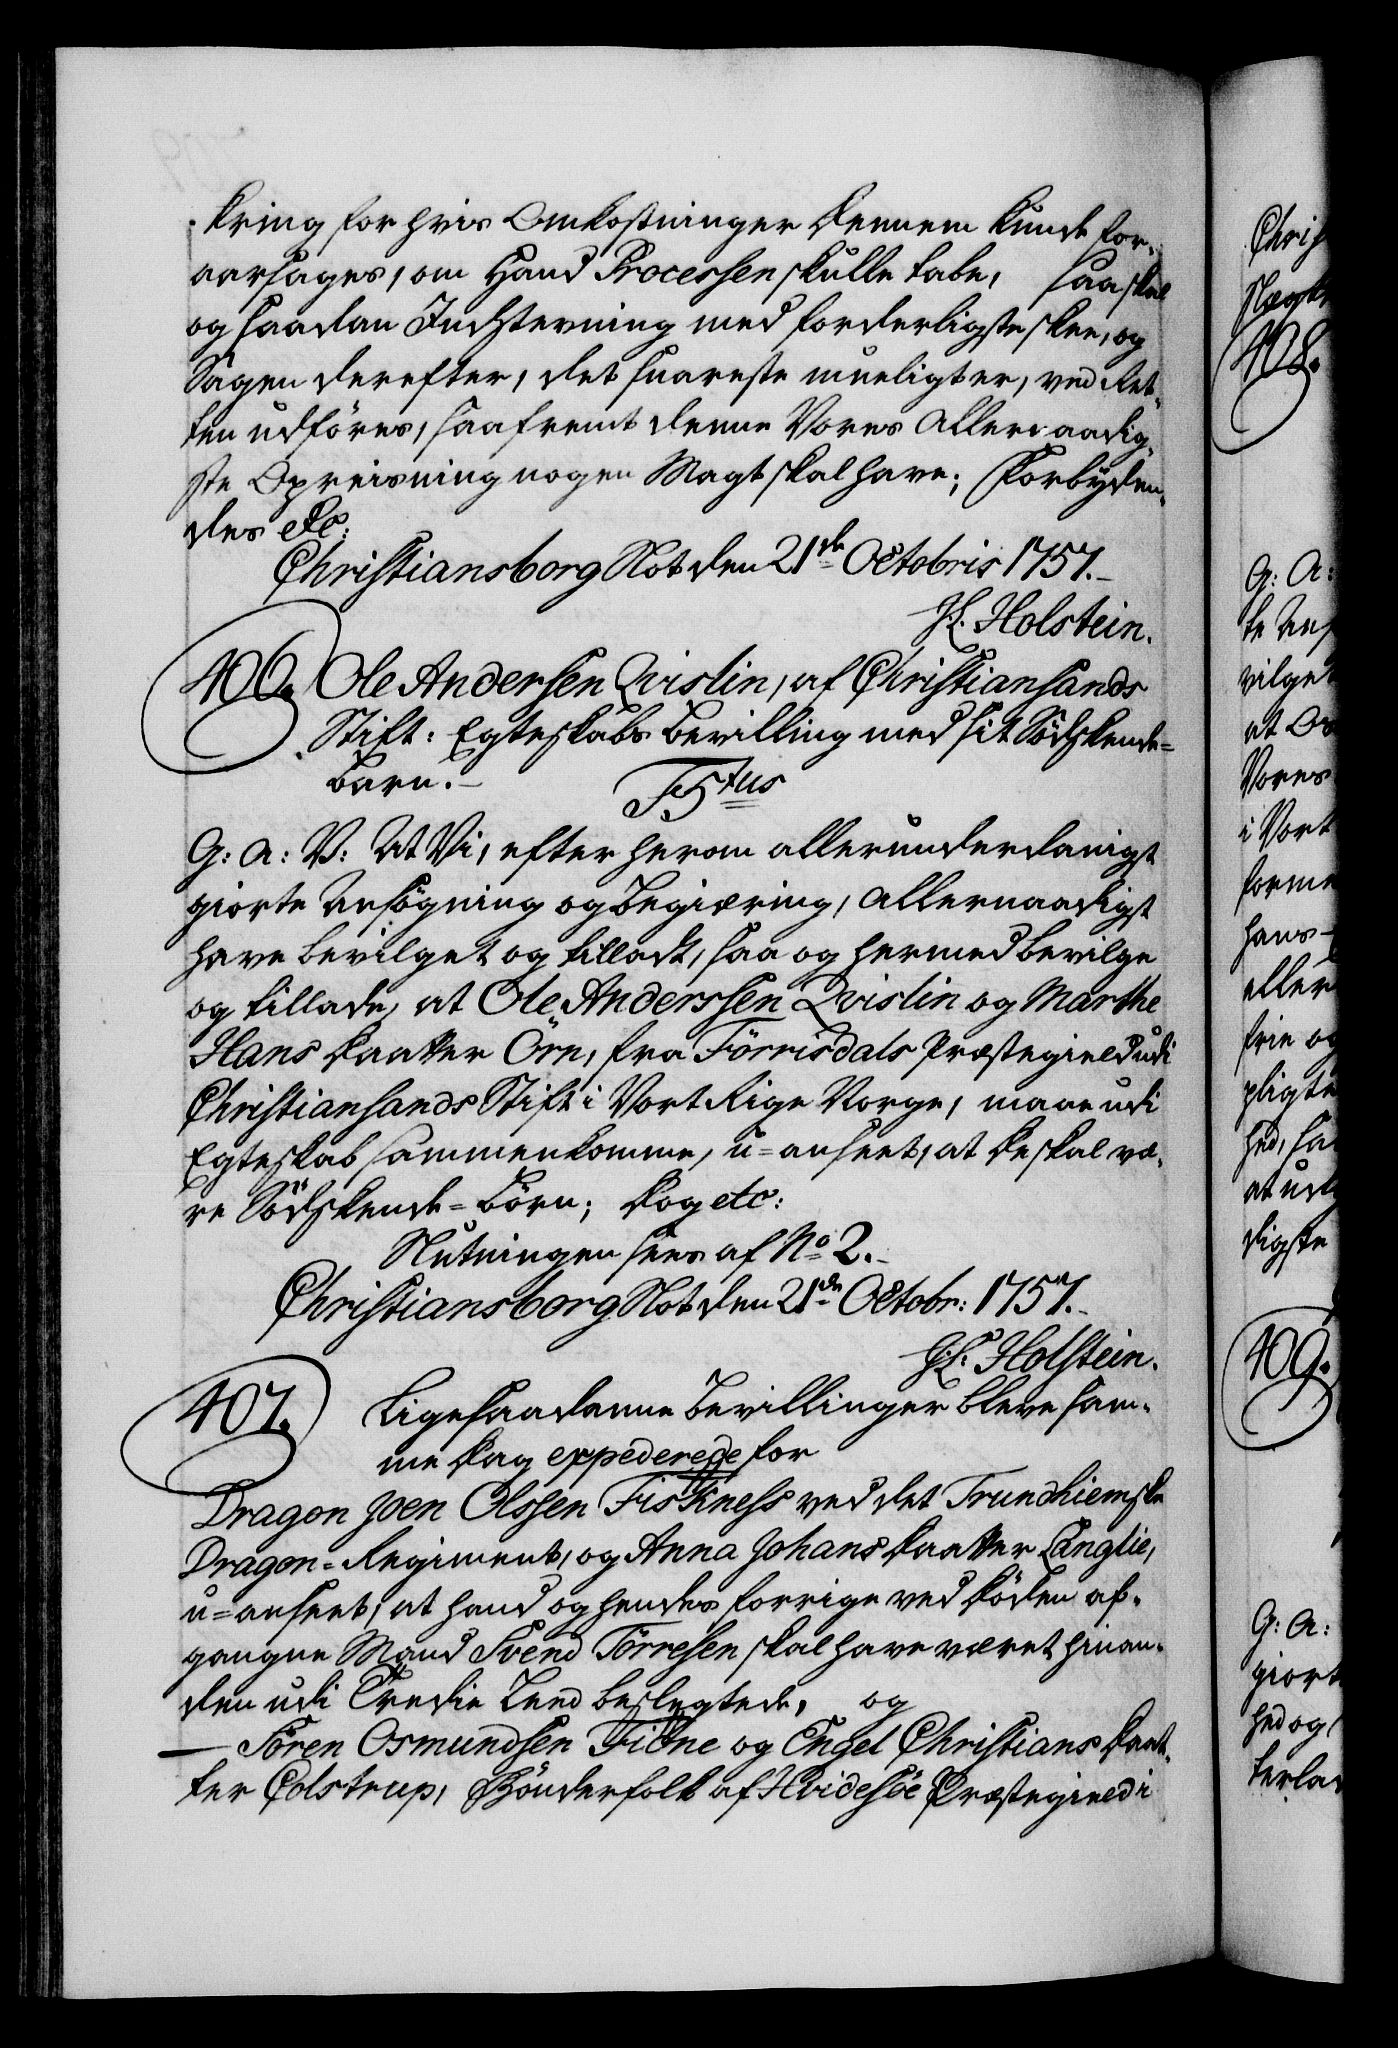 kring for hvis Omkostninger dennem kunde for-
aarsages, om Hand Processen skulle tabe, saa skal
og saadan Indstevning med forderligste skee, og
Sagen derefter, det snareste mueligt er, ved Ret-
ten udføres, saafremt denne Vores allernaadig-
ste Opreisning nogen Magt skal have; Forbyden-
des etc:
Christiansborg Slot den 21de Octobris 1757.
J.L. Holstein.
406. Ole Andersen Qvislin, af Christiansands
Stift: Egteskabs Bevilling med sit Södskende-
Barn.
F5tus
G: A: V: At Vi, efter herom allerunderdanigst
giorte Ansøgning og Begiæring, allernaadigst
have bevilget og tilladt, saa og hermed bevilge
og tillade, at Ole Anderssen Qvislin og Marthe
Hans Daatter Örn, fra Törrisdals Præstegield udi
Christiansands Stift i Vort Rige Norge, maae udi
Egteskab sammenkomme, u-anseet, at de skal væ-
re Södskende-Börn; Dog etc:
Slutningen sees af No 2.
Christiansborg Slot den 21de Octobr: 1757.
J.L. Holstein.
407. Ligesaadanne Bevillinger bleve sam-
me Dag expederede for
Dragon Joen Olssen Fiskness ved det Trundhiemske
Dragon-Regiment, og Anna Johans Daatter Langlie,
u-anseet, at hand og hendes forrige ved Døden af-
gangne Mand Svend Törresen skal have været hinan-
den udi Tredie Leed beslegtede, og
Sören Osmundsen Fidne og Engel Christians Daat-
ter Edstrup, Bönderfolk af Hvidesöe Præstegield i
Chris
408.
G: A:
vilget
Vores
i Vort
hans
eller
frie og
pligte
digste
409.
G: A:
giort
hed og